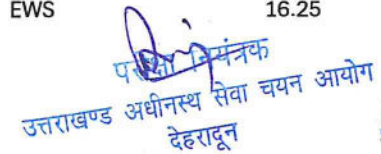 EWS 16.25
परीक्षा नियंत्रक
उत्तराखण्ड अधीनस्थ सेवा चयन आयोग
देहरादून